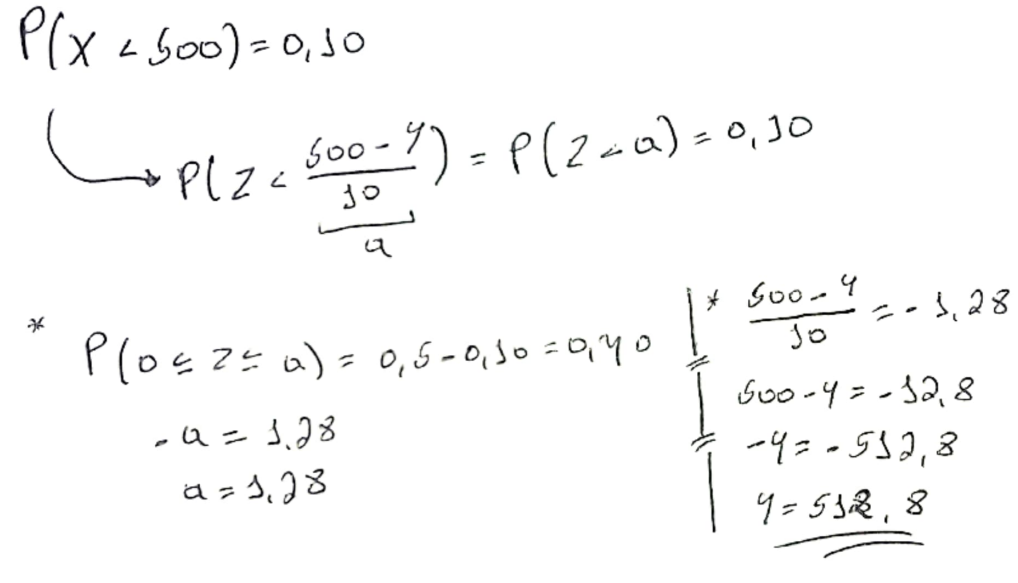 P(X < 500) = 0,10
P(Z < (500 - 4)/10) = P(Z < a) = 0,10
a
* P(0 ≤ Z ≤ a) = 0,5 - 0,10 = 0,40
- a = 1.28
a = 1,28
* (500 - 4)/10 = - 1,28
500 - 4 = - 12,8
-4 = - 512,8
4 = 512,8